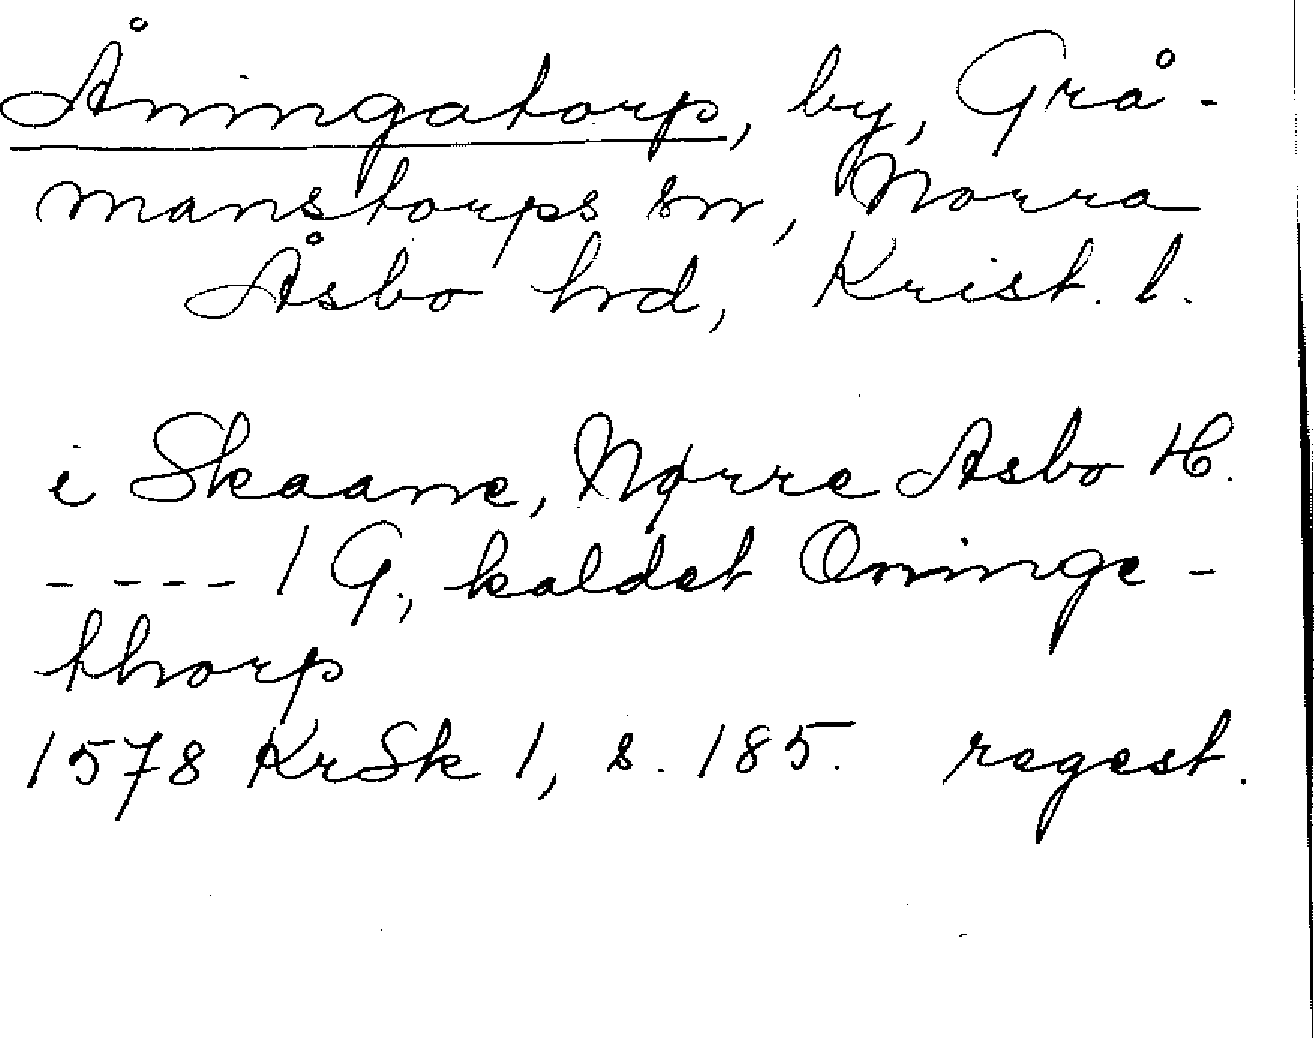 Åningatorp, by, Grå-
manstorps sn, Norra
Åsbo hd, Krist. l.
i Skaane, Nørre Asbo H.
---- 1 G., kaldet Oninge-
thorp
1578 KrSk 1, s. 185. regest.